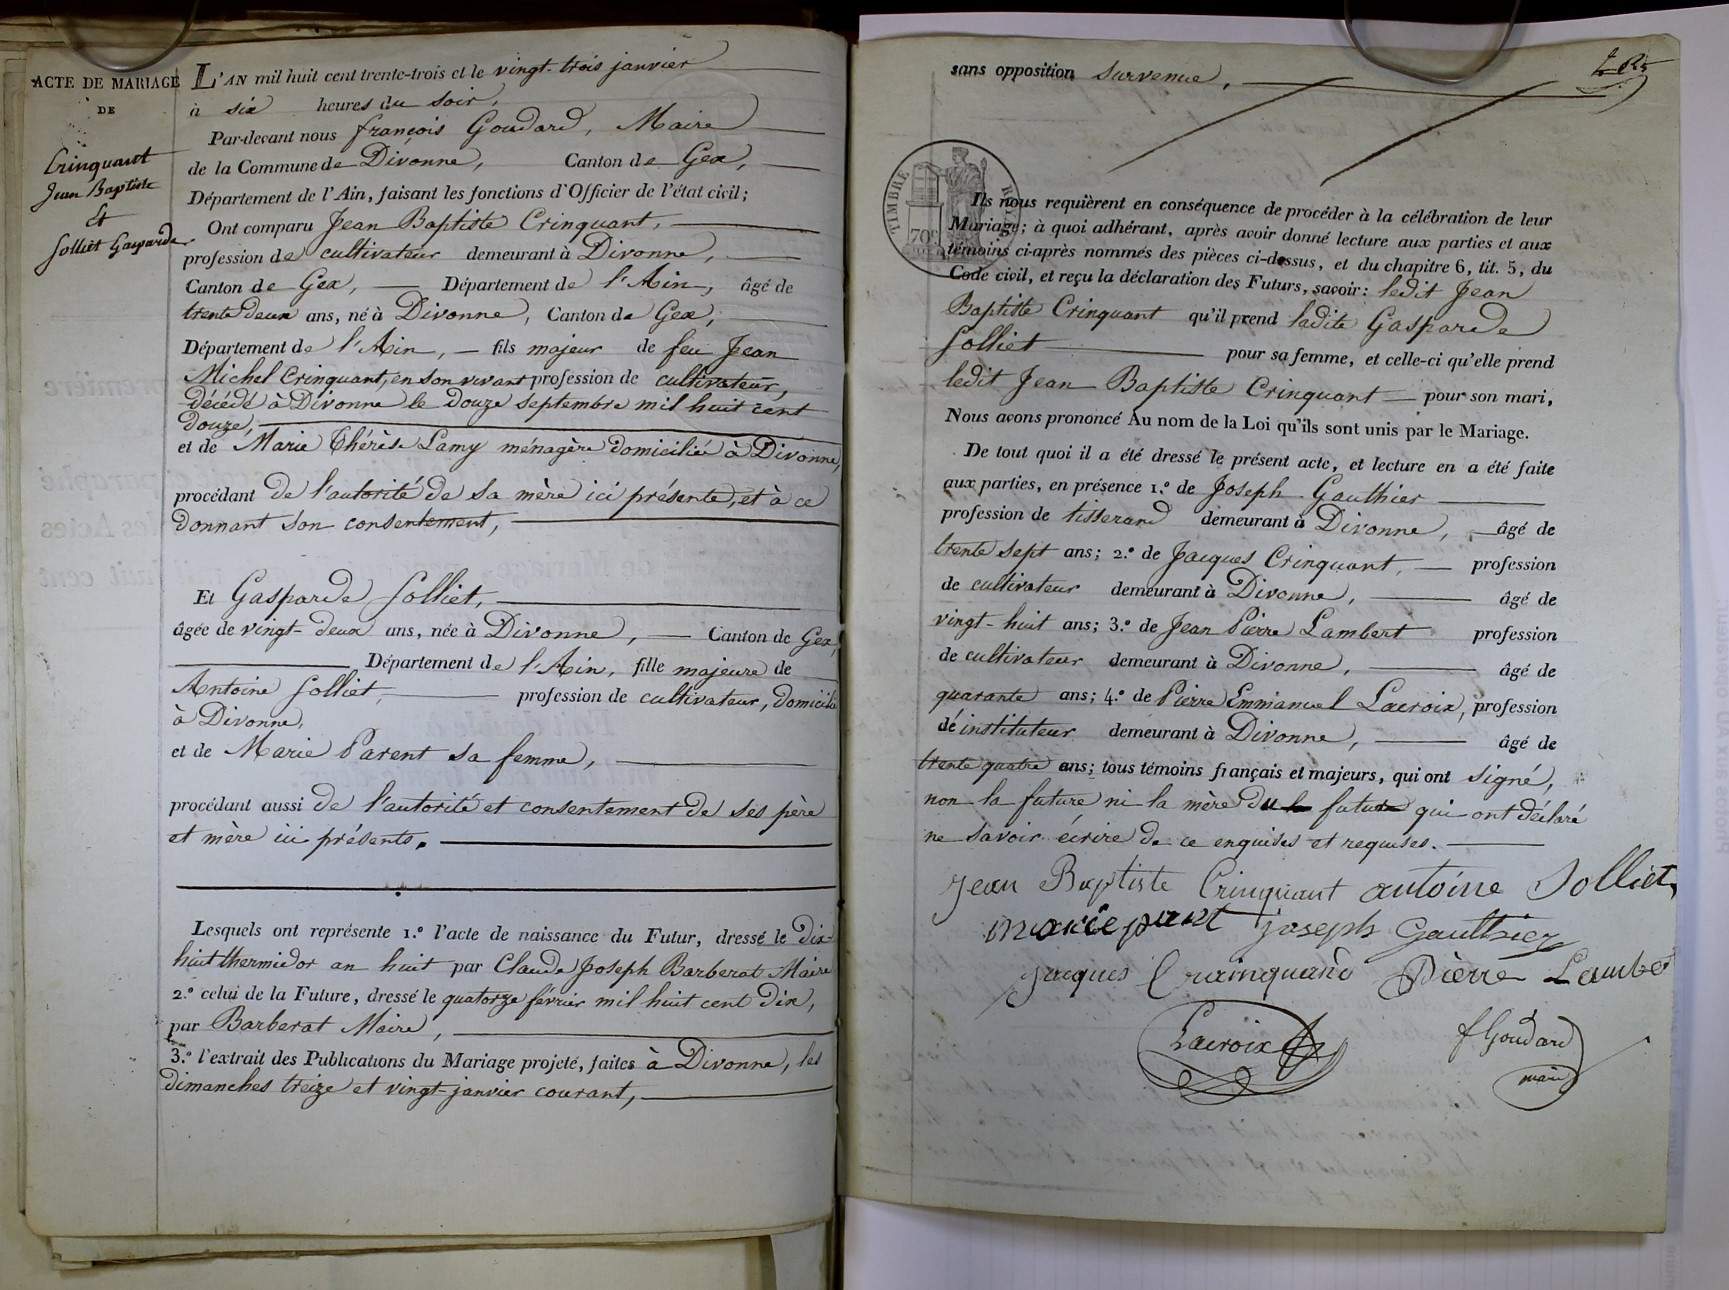 ACTE DE MARIAGE
DE
Crinquant
Jean Baptiste
Et
Solliet Gasparde
L'AN mil huit cent trente-trois et le vingt-trois janvier
à six heures du soir,
Par-devant nous françois Goudard, Maire
de la Commune de Divonne, Canton de Gex,
Département de l'Ain, faisant les fonctions d'Officier de l'état civil;
Ont comparu Jean Baptiste Crinquant,
profession de cultivateur demeurant à Divonne,
Canton de Gex, Département de l'Ain, âgé de
trente deux ans, né à Divonne, Canton de Gex,
Département de l'Ain, fils majeur de feu Jean
Michel Crinquant, en son vivant profession de cultivateur,
décédé à Divonne le douze septembre mil huit cent
douze,
et de Marie Thérèse Lamy ménagère domiciliée à Divonne,
procédant de l'autorité de sa mère ici présente, et à ce
donnant son consentement,
Et Gasparde Solliet,
âgée de vingt-deux ans, née à Divonne, Canton de Gex,
Département de l'Ain, fille majeure de
Antoine Solliet, profession de cultivateur, domicilié
à Divonne,
et de Marie Parent sa femme,
procédant aussi de l'autorité et consentement de ses père
et mère ici présents.
Lesquels ont représente 1.º l'acte de naissance du Futur, dressé le dix-
huit thermidor an huit par Claude Joseph Barberat Maire
2.º celui de la Future, dressé le quatorze février mil huit cent dix,
par Barberat Maire,
3.º l'extrait des Publications du Mariage projeté, faites à Divonne, les
dimanches treize et vingt janvier courant,
sans opposition survenue.
TIMBRE
70c
Ils nous requièrent en conséquence de procéder à la célébration de leur
Mariage; à quoi adhérant, après avoir donné lecture aux parties et aux
témoins ci-après nommés des pièces ci-dessus, et du chapitre 6, tit. 5, du
Code civil, et reçu la déclaration des Futurs, savoir: ledit Jean
Baptiste Crinquant qu'il prend ladite Gasparde
Solliet pour sa femme, et celle-ci qu'elle prend
ledit Jean Baptiste Crinquant pour son mari,
Nous avons prononcé Au nom de la Loi qu'ils sont unis par le Mariage.
De tout quoi il a été dressé le présent acte, et lecture en a été faite
aux parties, en présence 1.º de Joseph Gauthier
profession de tisserand demeurant à Divonne, âgé de
trente sept ans; 2.º de Jacques Crinquant, profession
de cultivateur demeurant à Divonne, âgé de
vingt-huit ans; 3.º de Jean Pierre Lambert profession
de cultivateur demeurant à Divonne, âgé de
quarante ans; 4.º de Pierre Emmanuel Lacroix, profession
de instituteur demeurant à Divonne, âgé de
trente quatre ans; tous témoins français et majeurs, qui ont signé,
non la future ni la mère du futur qui ont déclaré
ne savoir écrire de ce enquises et requises.
Jean Baptiste Crinquant antoine Solliet
marie parent joseph Gaulthier
jaques Crainquand Pierre Lambe
Lacroix
f Goudard
maire